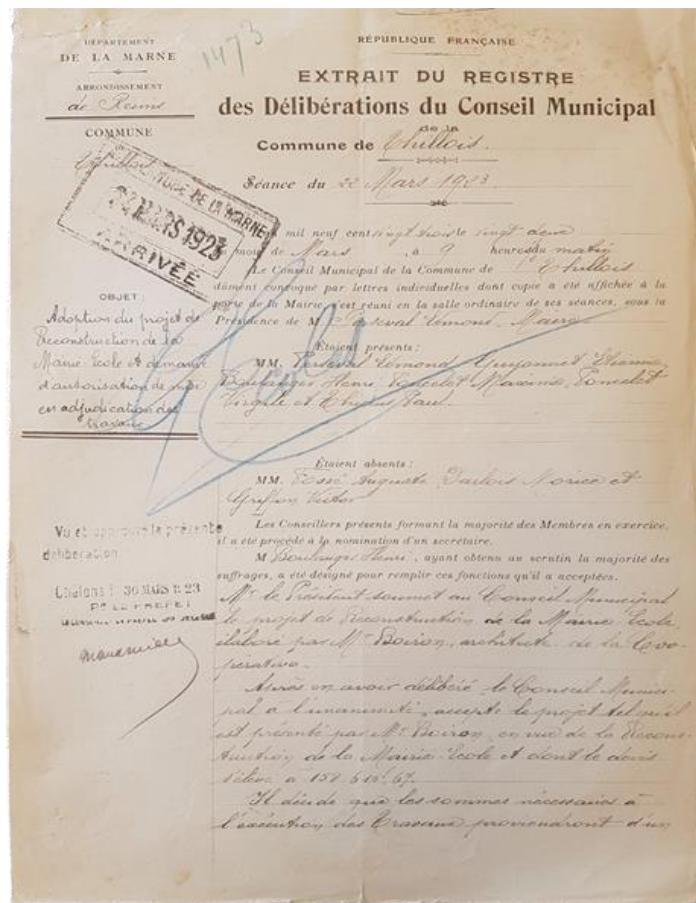 1473
DÉPARTEMENT
DE LA MARNE
ARRONDISSEMENT
de Reims
COMMUNE
Thillois
PRÉFECTURE DE LA MARNE
MARS 1923
ARRIVÉE
OBJET :
Adoption du projet de
Reconstruction de la
Mairie-Ecole et demande
d'autorisation de mise
en adjudication des
travaux
Vu et approuvé la présente
délibération
Châlons l 30 MARS 1923
Pr LE PRÉFET
RÉPUBLIQUE FRANÇAISE
EXTRAIT DU REGISTRE
des Délibérations du Conseil Municipal
de la
Commune de Thillois.
Séance du 22 Mars 1923
mil neuf cent vingt trois le vingt deux
mois de Mars, à 9 heures du matin
Le Conseil Municipal de la Commune de Thillois
dûment convoqué par lettres individuelles dont copie a été affichée à la
porte de la Mairie, s'est réuni en la salle ordinaire de ses séances, sous la
Présidence de M. Perseval Edmond, Maire
Étaient présents :
MM. Perseval Edmond, Guyonnet Etienne,
Boulanger Henri, Poncelet Maxime, Poncelet
Virgile et Paul.
Étaient absents :
MM. Auguste, Norice et
Griffon Victor
Les Conseillers présents formant la majorité des Membres en exercice,
il a été procédé à la nomination d'un secrétaire.
M Boulanger Henri, ayant obtenu au scrutin la majorité des
suffrages, a été désigné pour remplir ces fonctions qu'il a acceptées.
Mr le Président soumet au Conseil Municipal
le projet de Reconstruction de la Mairie Ecole
élaboré par Mr Boiron, architecte de la Coo-
pérative.
Après en avoir délibéré le Conseil Munici-
pal à l'unanimité, accepte le projet tel qu'il
est présenté par Mr Boiron, en vue de la Recons-
truction de la Mairie-Ecole et dont le devis
s'élève à
Il décide que les sommes nécessaires à
l'exécution des Travaux proviendront d'un